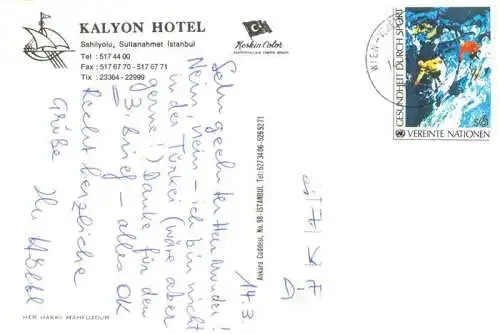 KALYON HOTEL
Sahilyolu, Sultanahmet İstanbul
Tel : 517 44 00
Fax : 517 67 70 - 517 67 71
Tlx : 23364 - 22999
Keskin Color
Ankara Caddesi, No. 98-İSTANBUL Tel: 5273406-5265271
HER HAKKI MAHFUZDUR
WIEN
GESUNDHEIT DURCH SPORT
VEREINTE NATIONEN
14.3.
Sehr geehrter Herr
Nein, nein - ich bin nicht
in der Türkei (wäre aber
gerne!) Danke für den
3. Brief - alles OK
Recht herzliche
Grüße
Ihr